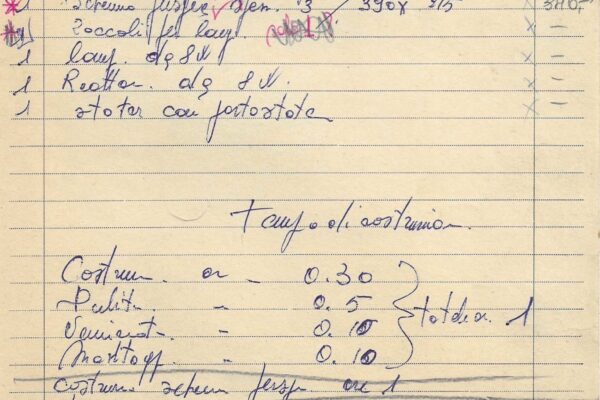 1 schermo perspex spen. 3 / 390x 215
Zoccoli per lamp.
1 lamp. da 8 W
1 Reattor. da 8 W.
1 stater con portostater
Tempo di costruzion.
Costruz. ore - 0.30
Pulit. - 0.5
Verniciat. - 0.10
Montagg. - 0.10
tot. ore 1
costruz schermo persp. ore 1